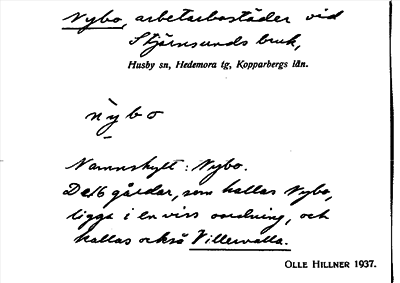 Nybo, arbetarbostäder vid
Stjärnsunds bruk,
Husby sn, Hedemora tg, Kopparbergs län.
nỳbo
Namnskylt: Nybo.
De 16 gårdar, som kallas Nybo,
ligga i en viss oordning, och
kallas också Villervalla.
OLLE HILLNER 1937.